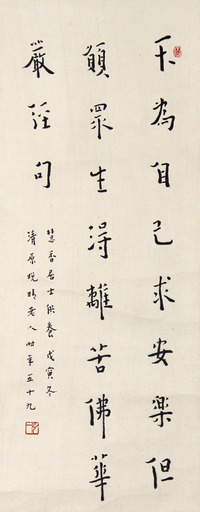 不為自己求安樂但
願眾生得離苦佛華
嚴經句
慧香居士供養戊寅冬
清原晚晴老人時年五十九